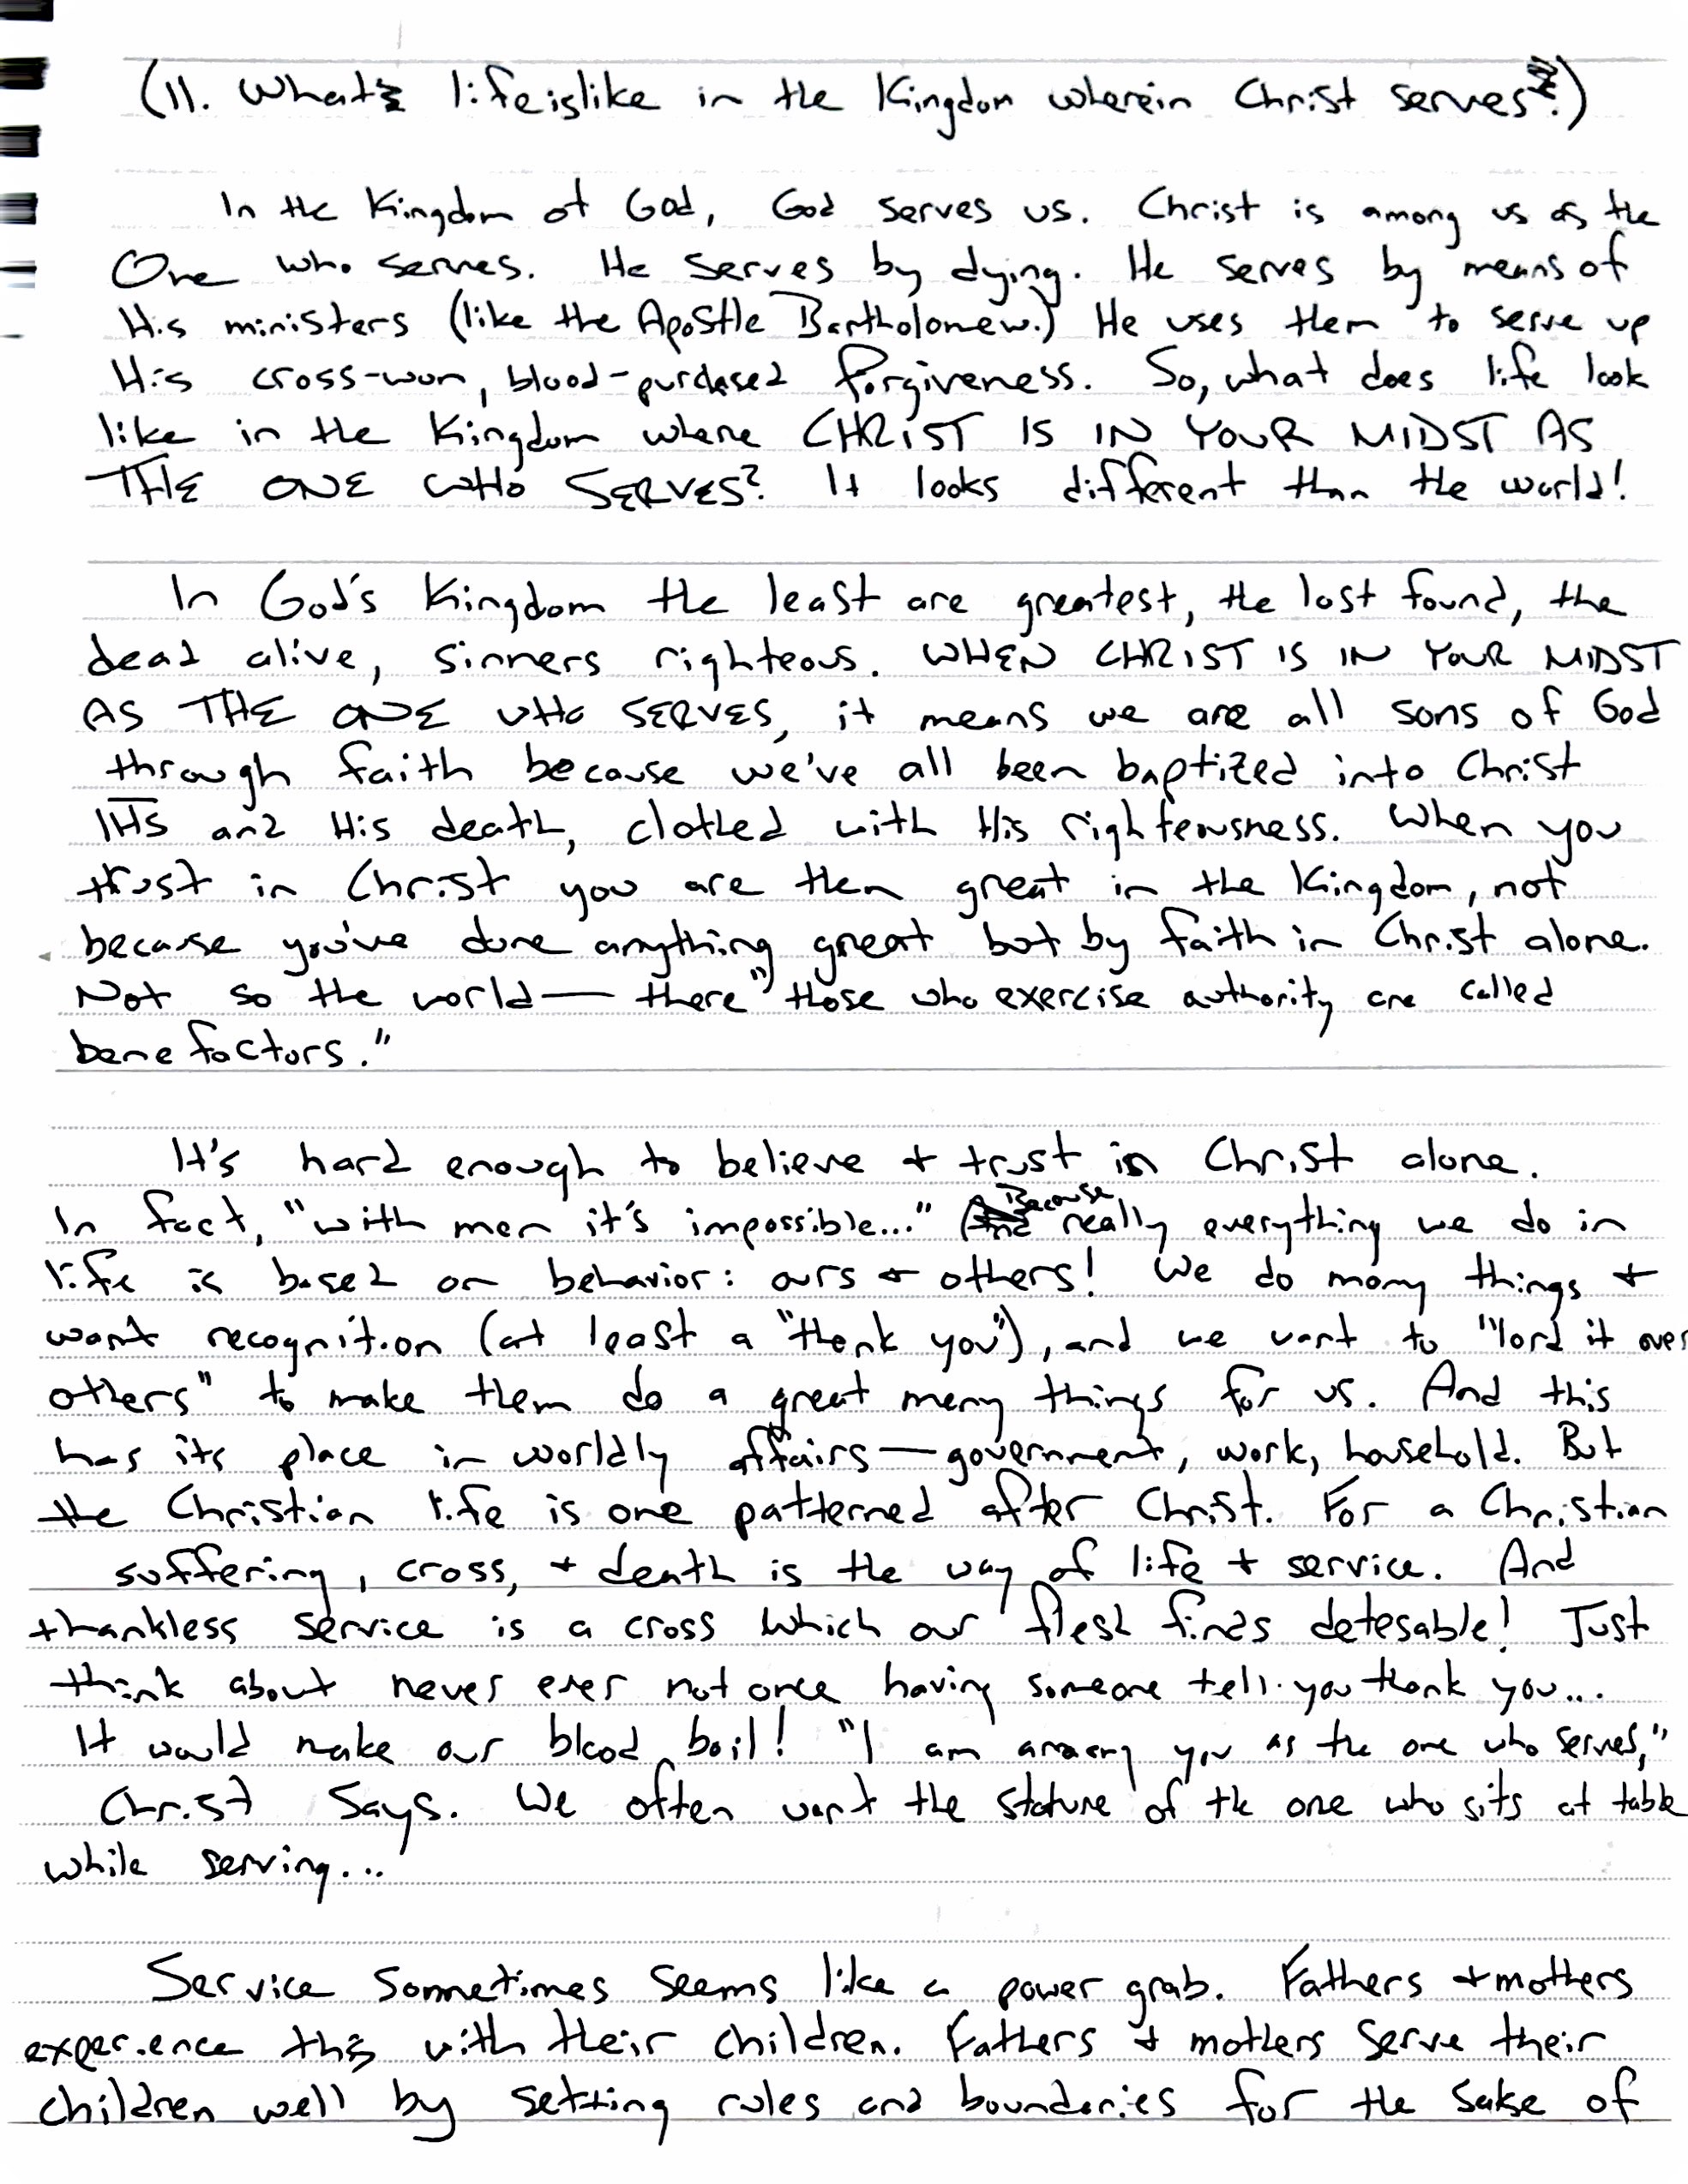 (II. What life is like in the Kingdom wherein Christ serves.)
In the Kingdom of God, God serves us. Christ is among us as the
One who serves. He serves by dying. He serves by means of
His ministers (like the Apostle Bartholomew.) He uses them to serve up
His cross-won, blood-purchased forgiveness. So, what does life look
like in the Kingdom where CHRIST IS IN YOUR MIDST AS
THE ONE WHO SERVES? It looks different than the world!
In God's Kingdom the least are greatest, the lost found, the
dead alive, sinners righteous. WHEN CHRIST IS IN YOUR MIDST
AS THE ONE WHO SERVES, it means we are all sons of God
through faith because we've all been baptized into Christ
IHS and His death, clothed with His righteousness. When you
trust in Christ you are then great in the Kingdom, not
because you've done anything great but by faith in Christ alone.
Not so the world—there "those who exercise authority are called
benefactors."
It's hard enough to believe + trust in Christ alone.
In fact, "with men it's impossible..." Because really everything we do in
life is based on behavior: ours + others! We do many things +
want recognition (at least a "thank you"), and we want to "lord it over
others" to make them do a great many things for us. And this
has its place in worldly affairs—government, work, household. But
the Christian life is one patterned after Christ. For a Christian
suffering, cross, + death is the way of life + service. And
thankless service is a cross which our flesh finds detesable! Just
think about never ever not once having someone tell you thank you...
It would make our blood boil! "I am among you as the one who serves,"
Christ says. We often want the stature of the one who sits at table
while serving...
Service sometimes seems like a power grab. Fathers + mothers
experience this with their children. Fathers + mothers serve their
children well by setting rules and boundaries for the sake of